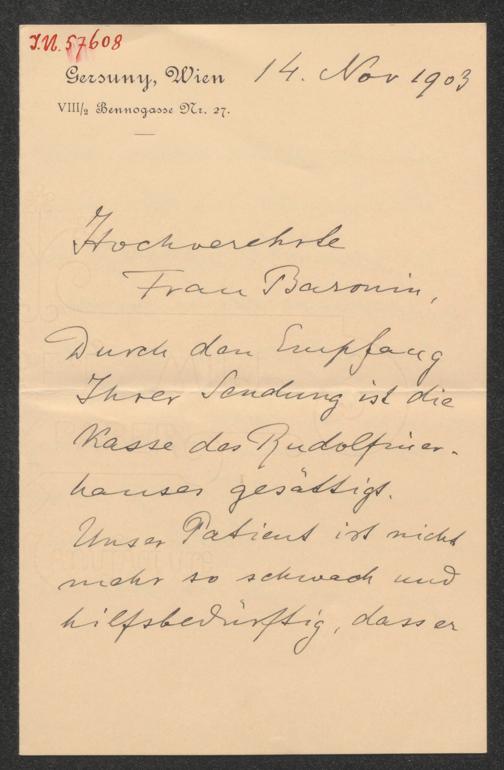 I.N. 57608
Gersuny, Wien
14. Nov 1903
VIII/2 Bennogasse Nr. 27.
Hochverehrte
Frau Baronin,
Durch den Empfang
Ihrer Sendung ist die
Kasse des Rudolfiner-
hauses gesättigt.
Unser Patient ist nicht
mehr so schwach und
hilfsbedürftig, dass er